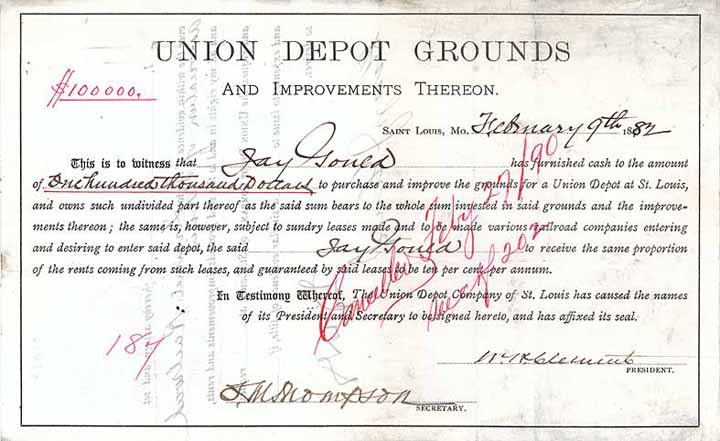 UNION DEPOT GROUNDS
AND IMPROVEMENTS THEREON.
$100000.
SAINT LOUIS, MO. February 9th 1882
This is to witness that Jay Gould has furnished cash to the amount
of One hundred thousand Dollars to purchase and improve the grounds for a Union Depot at St. Louis,
and owns such undivided part thereof as the said sum bears to the whole sum invested in said grounds and the improve-
ments thereon; the same is, however, subject to sundry leases made and to be made various railroad companies entering
and desiring to enter said depot, the said Jay Gould to receive the same proportion
of the rents coming from such leases, and guaranteed by said leases to be ten per cent. per annum.
Cancelled Feby 27/90
In Testimony Whereof, The Union Depot Company of St. Louis has caused the names
of its President and Secretary to be signed hereto, and has affixed its seal.
187
PRESIDENT.
SECRETARY.